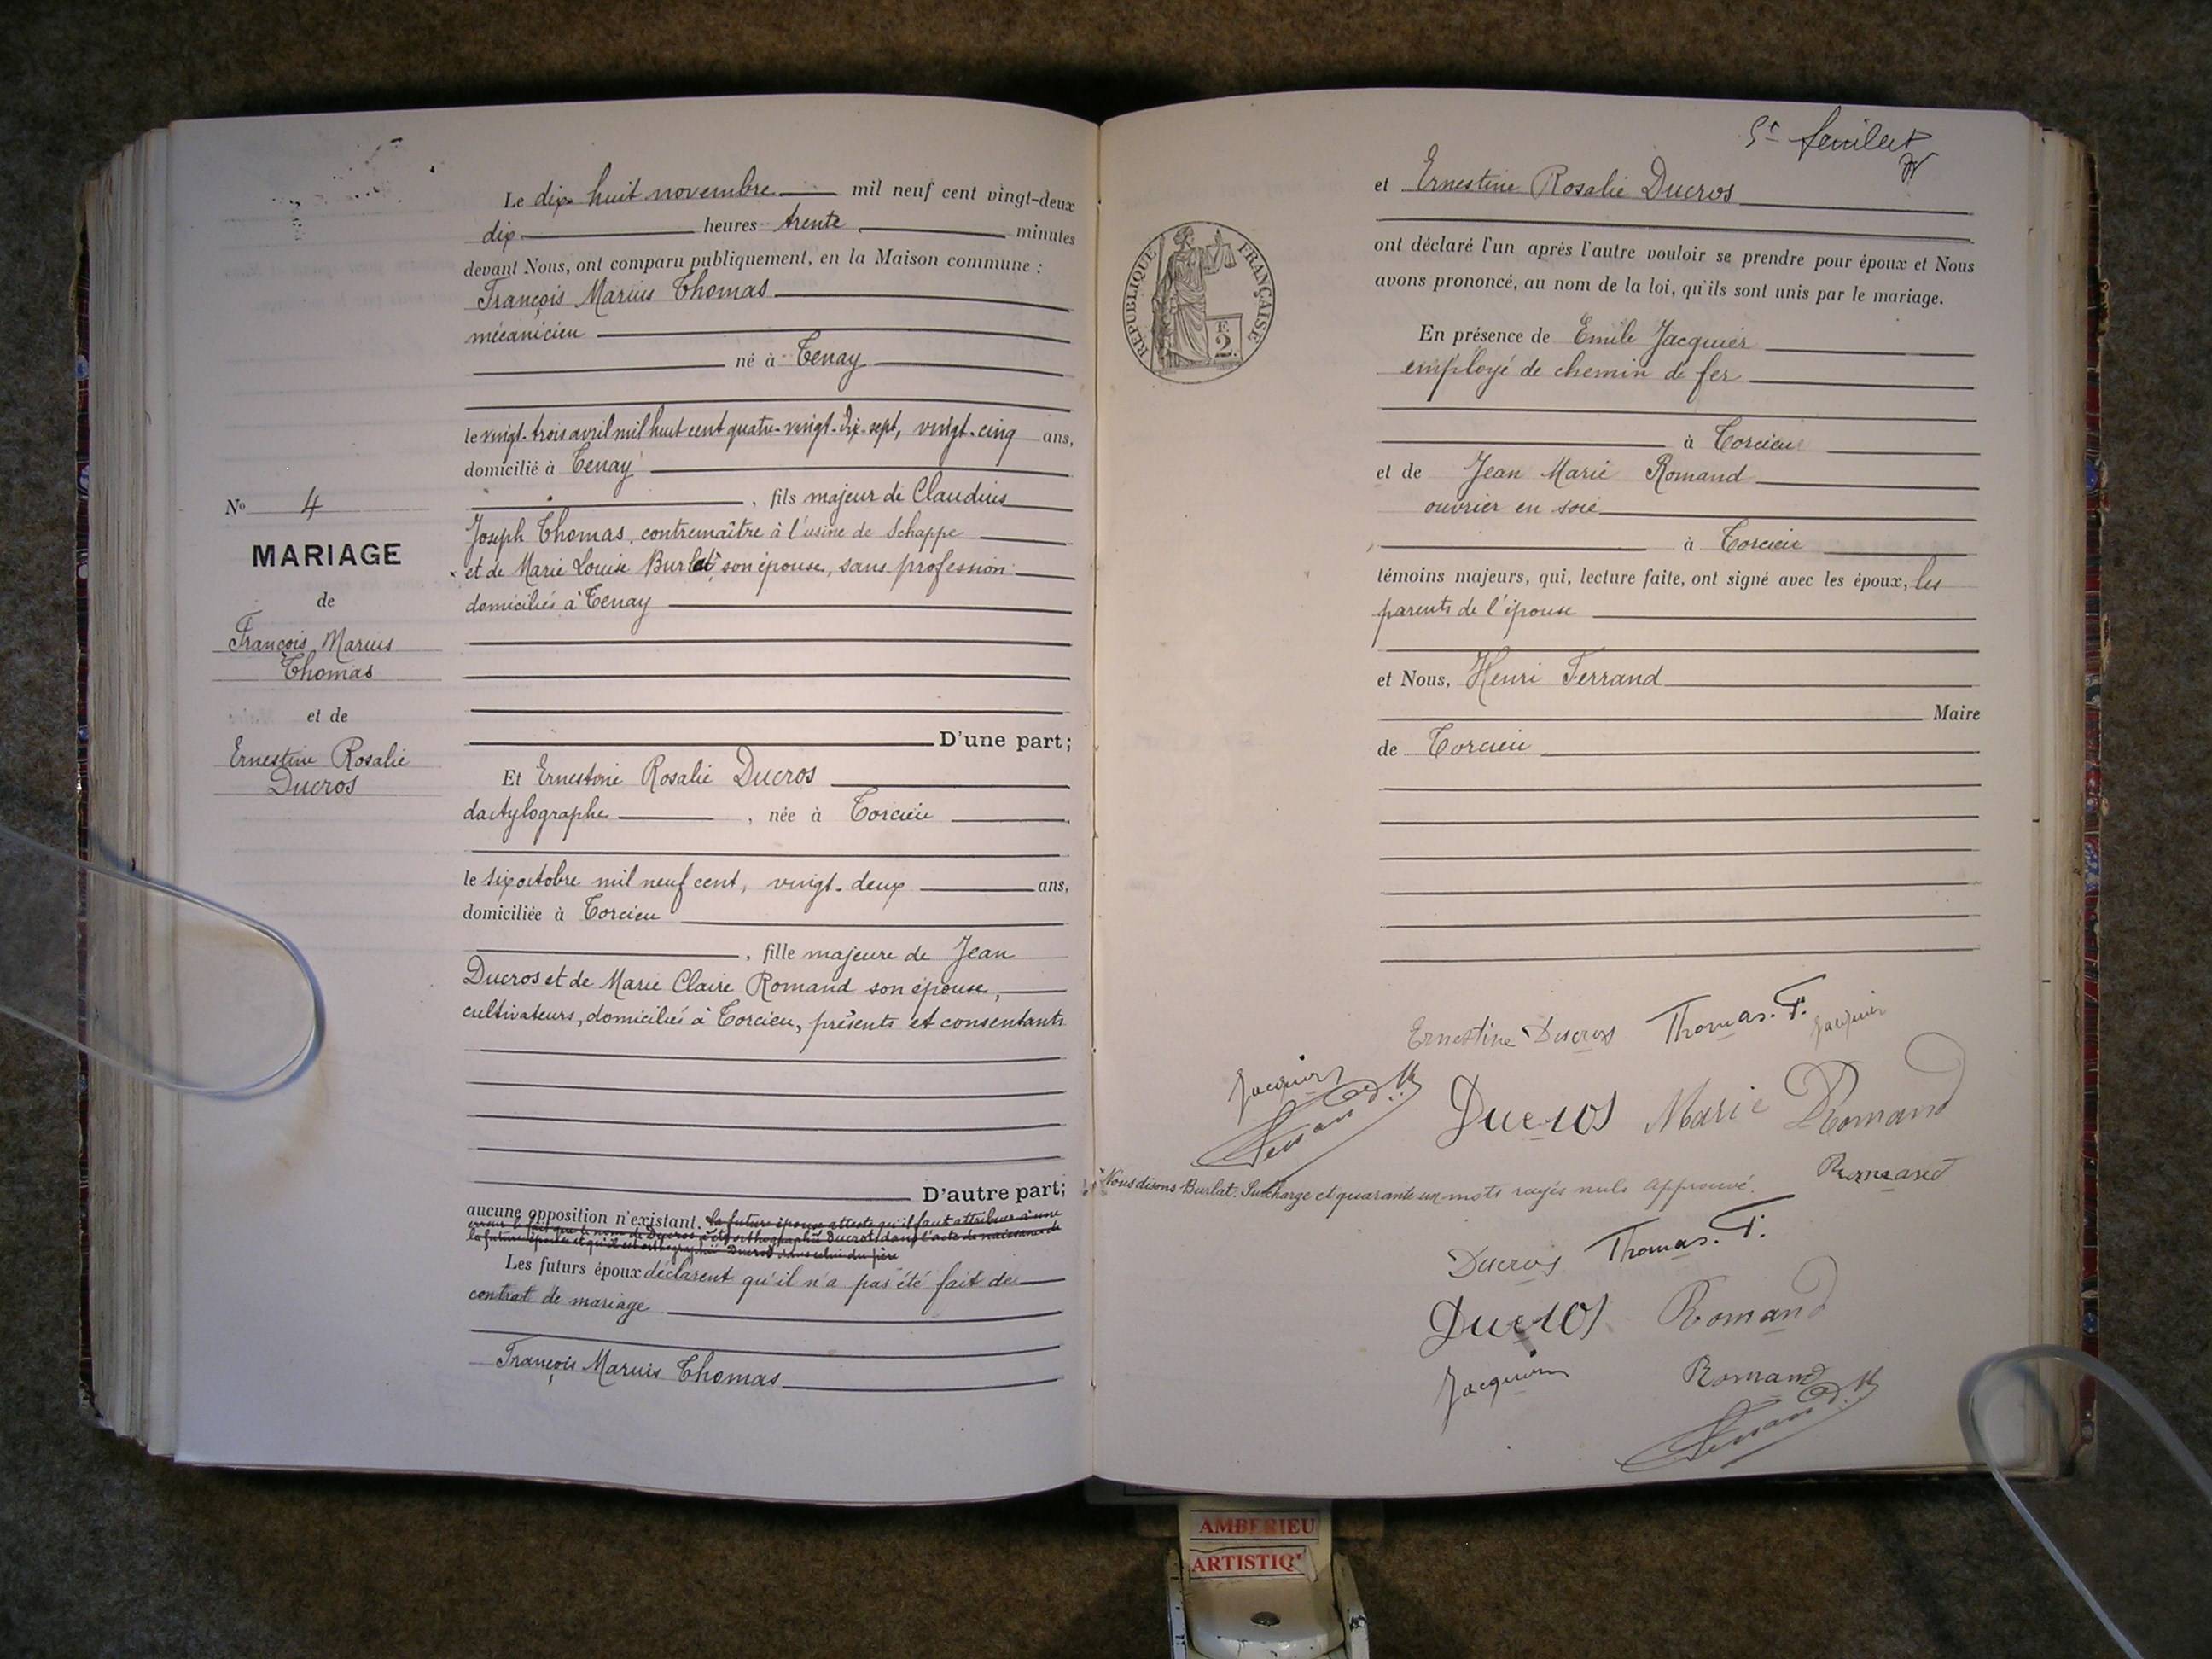 Le dix huit novembre mil neuf cent vingt-deux
dix heures trente minutes
devant Nous, ont comparu publiquement, en la Maison commune :
François Marius Thomas
mécanicien
né à Tenay
le vingt-trois avril mil huit cent quatre-vingt-dix-sept, vingt-cinq ans,
domicilié à Tenay
, fils majeur de Claudius
Joseph Thomas, contremaître à l'usine de Schappe
et de Marie Louise Burlat, son épouse, sans profession
domiciliés à Tenay
D'une part;
No 4
MARIAGE
de
François Marius
Thomas
et de
Ernestine Rosalie
Ducros
Et Ernestine Rosalie Ducros
dactylographe , née à Torcieu
le six octobre mil neuf cent, vingt-deux ans,
domiciliée à Torcieu
, fille majeure de Jean
Ducros et de Marie Claire Romand son épouse,
cultivateurs, domiciliés à Torcieu, présents et consentants
D'autre part;
aucune opposition n'existant. la future épouse atteste qu'il faut attribuer à une
erreur le fait que le nom de Ducros a été orthographié Ducrot dans l'acte de naissance de
la future épouse et qu'il est orthographié Ducros dans celui du père
Les futurs époux déclarent qu'il n'a pas été fait de
contrat de mariage
François Marius Thomas
5e feuillet
et Ernestine Rosalie Ducros
REPUBLIQUE FRANÇAISE
2
ont déclaré l'un après l'autre vouloir se prendre pour époux et Nous
avons prononcé, au nom de la loi, qu'ils sont unis par le mariage.
En présence de Emile Jacquier
employé de chemin de fer
à Torcieu
et de Jean Marie Romand
ouvrier en soie
à Torcieu
témoins majeurs, qui, lecture faite, ont signé avec les époux, les
parents de l'épouse
et Nous, Henri Ferrand
Maire
de Torcieu
Ernestine Ducros Thomas. F. Jacquier
Jacquier
Ferrand. H
Ducros Marie Romand
Romand
Nous disons Burlat. Surcharge et quarante un mots rayés nuls Approuvé.
Ducros Thomas. F.
Ducros Romand
Jacquier Romand
Ferrand. H
AMBERIEU
ARTISTIQ'